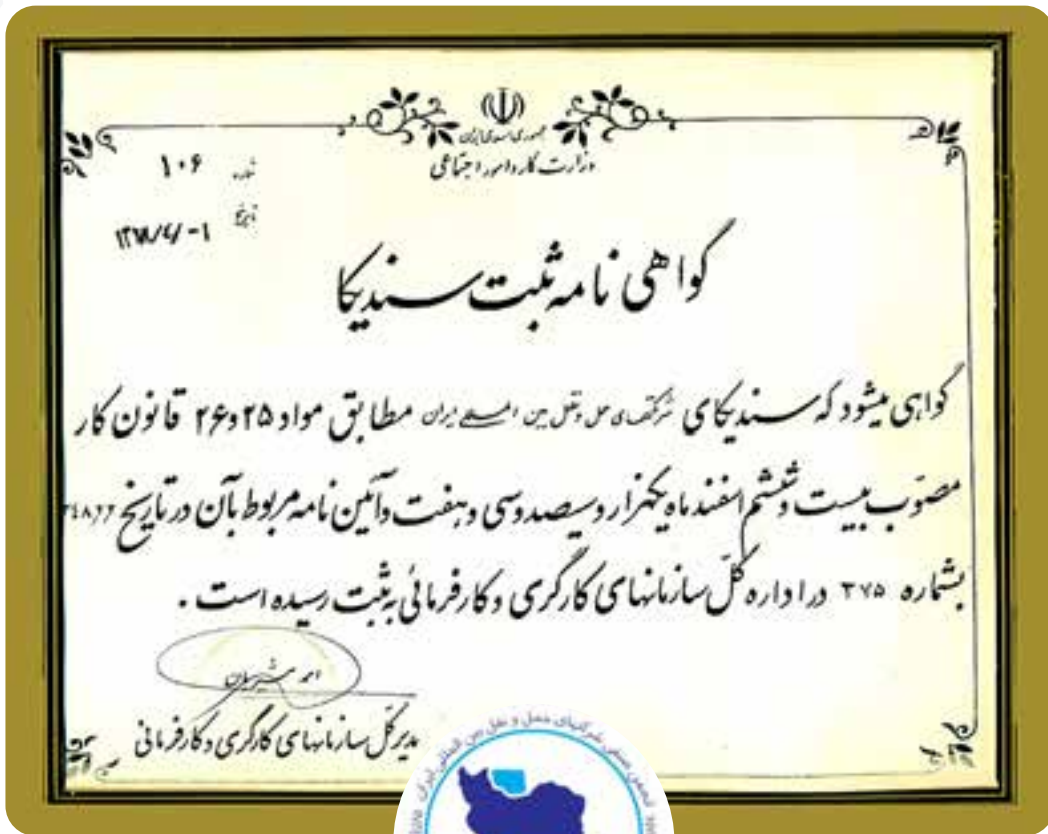 جمهوری اسلامی ایران
وزارت کار و امور اجتماعی
شماره ۱۰۶
تاریخ
گواهی نامه ثبت سندیکا
گواهی میشود که سندیکای شرکتهای حمل و نقل بین المللی ایران مطابق مواد ۲۵ و ۲۶ قانون کار
مصوب بیست و ششم اسفند ماه یکهزار و سیصد و سی و هفت و آئین نامه مربوط بآن در تاریخ
بشماره ۳۷۵ در اداره کل سازمانهای کارگری و کارفرمائی به ثبت رسیده است .
مدیر کل سازمانهای کارگری و کارفرمائی
انجمن صنفی شرکتهای حمل و نقل بین المللی ایران